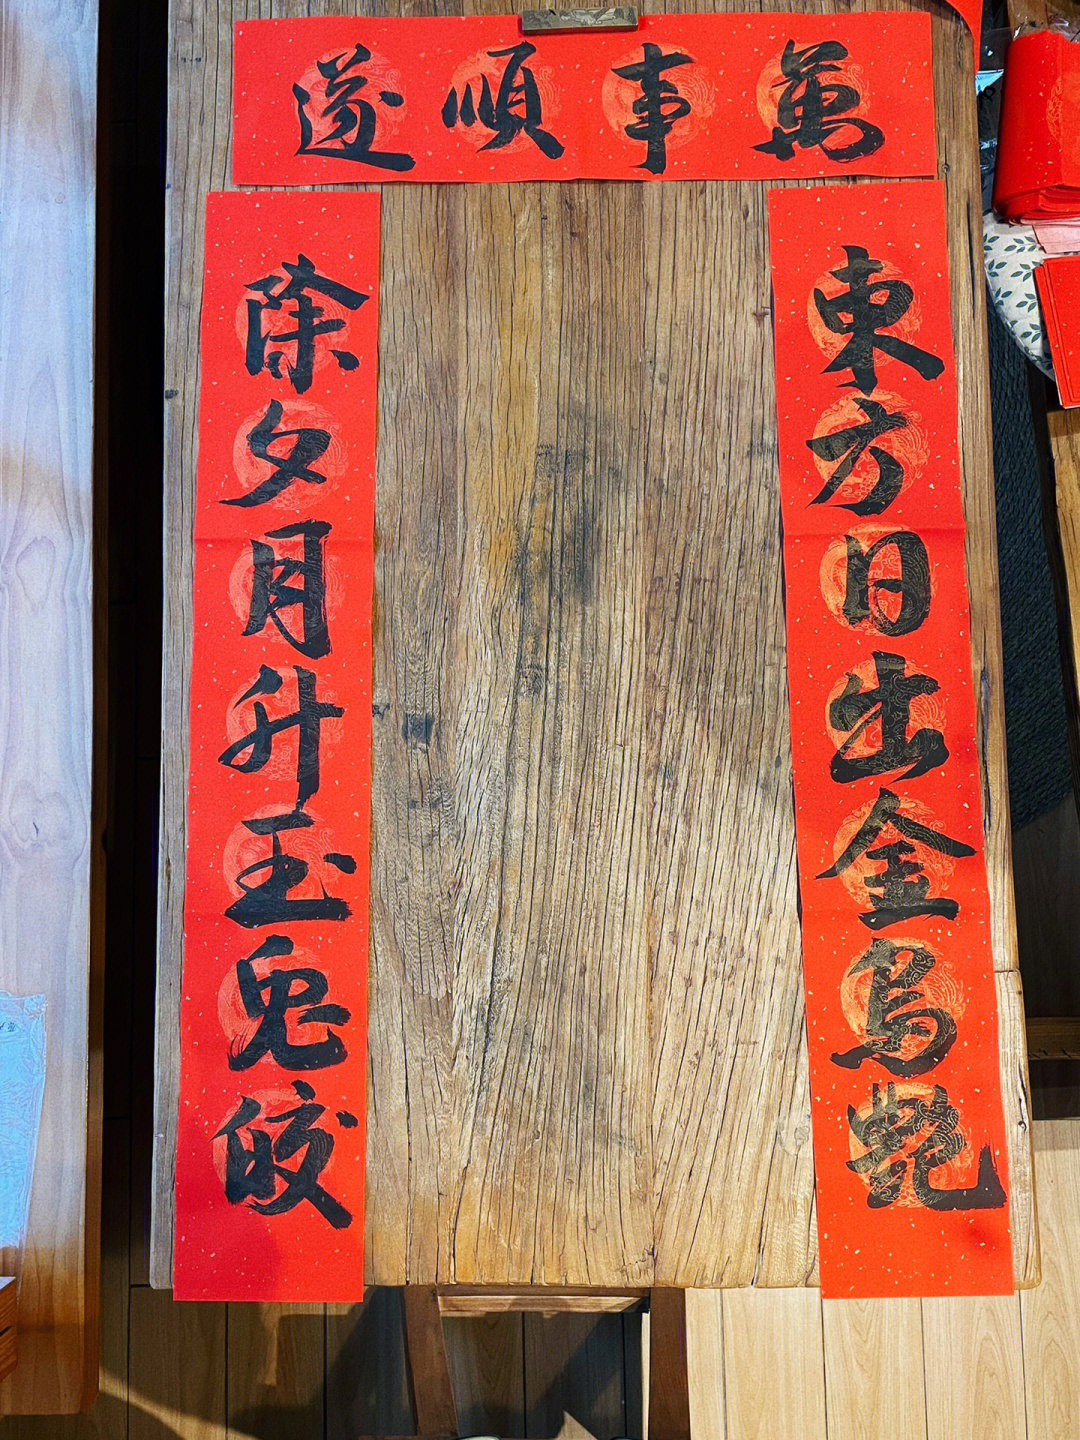 萬事順遂
東方日出金烏艶
除夕月升玉兔皎